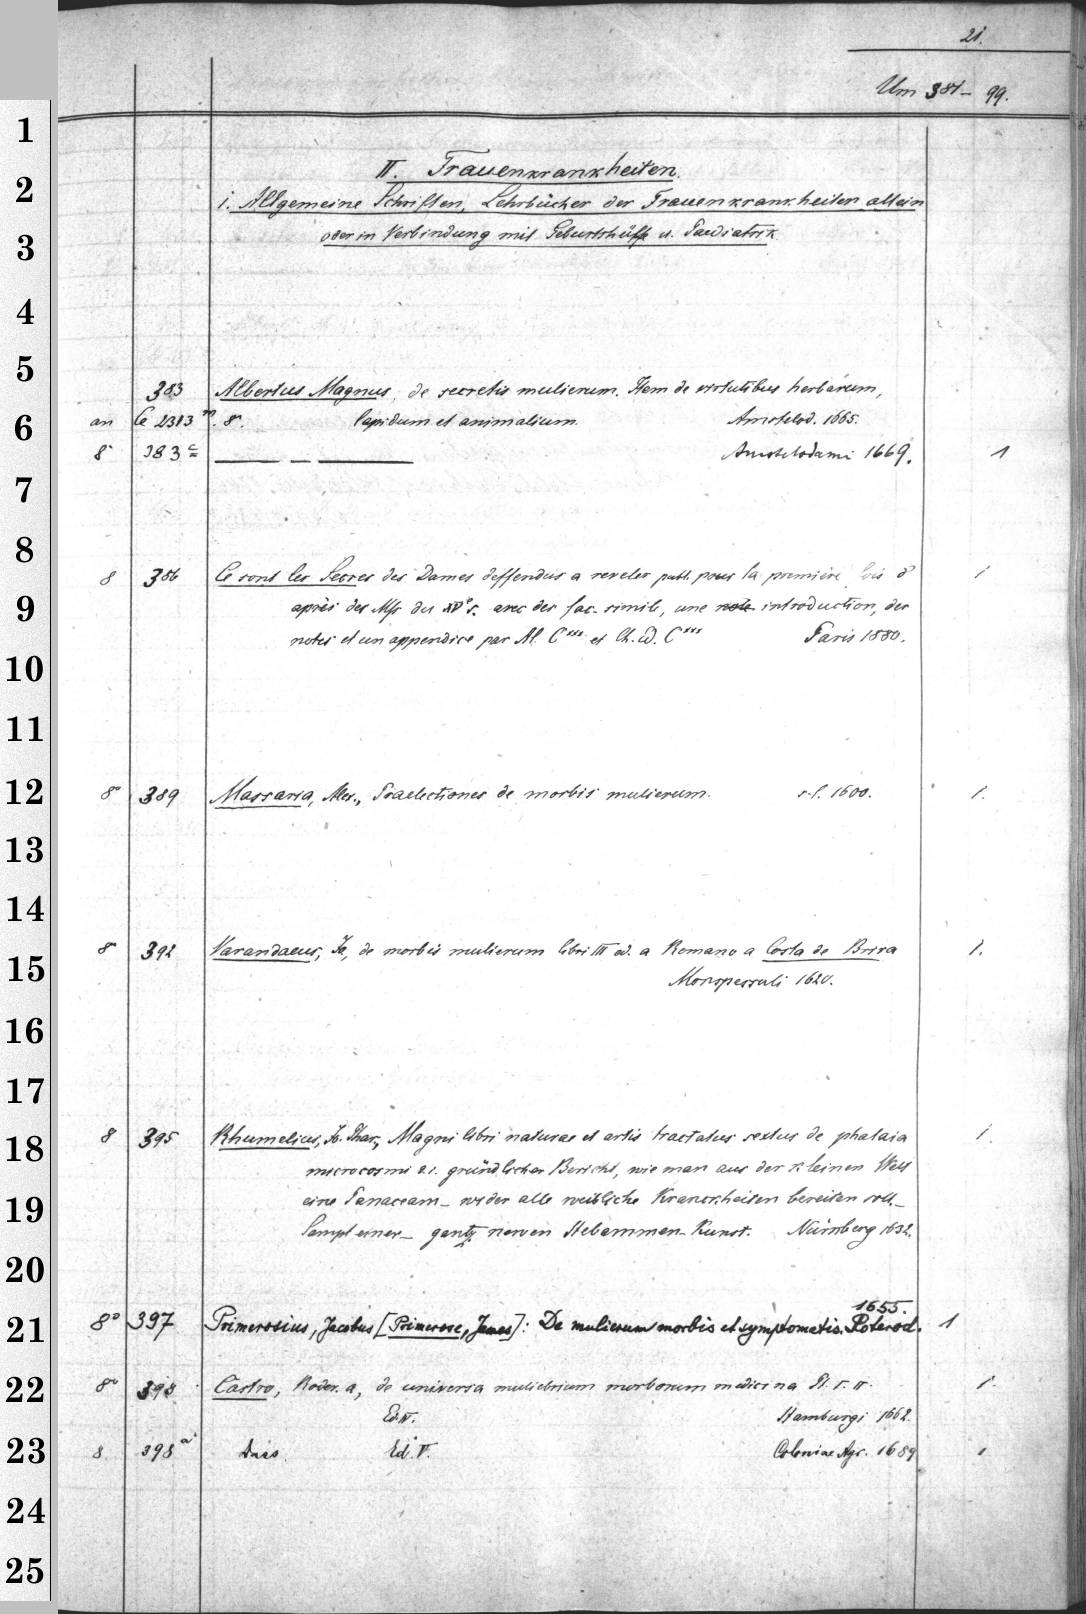 21.
Um 381-99.
II. Frauenkrankheiten.
1. Allgemeine Schriften, Lehrbücher der Frauenkrankheiten allein
oder in Verbindung mit Geburtshülfe u. Paediatrik
383 Albertus Magnus, de secretis mulierum. Item de virtutibus herbarum,
an Ce 2313 m. 8. lapidum et animalium. Amstelod. 1665.
8° 383 c — — — Amstelodami 1669. 1
8 386 Ce sont les Secres des Dames deffendus a reveler publ. pour la première fois d'
après des Mss. du XV° s. avec des fac-simile, une note introduction, des
notes et un appendice par M. C*** et Ch. Ed. C*** Paris 1880. 1
8° 389 Massaria, Alex., Praelectiones de morbis mulierum. s. l. 1600. 1.
8° 392 Varandaeus, Jo, de morbis mulierum libri III ed. a Romano a Costa de Brira
Monspessuli 1620. 1.
8 395 Rhumelius, Jo. Phar., Magni libri naturae et artis tractatus sextus de phalaia
microcosmi d. i. gründlicher Bericht, wie man aus der kleinen Welt
eine Panaceam wider alle weibliche Kranckheiten bereiten soll
Sampt einer gantz newen Hebammen-Kunst. Nürnberg 1632. 1.
1655.
8° 397 Primerosius, Jacobus [Primerose, James]: De mulierum morbis et symptomatis. Roterod. 1
8° 398 Castro, Roder. a, de universa muliebrium morborum medicina Pt. I. II.
Ed. IV. Hamburgi 1662. 1.
8 398 a Dass. Ed. V. Coloniae Agr. 1689 1
1
2
3
4
5
6
7
8
9
10
11
12
13
14
15
16
17
18
19
20
21
22
23
24
25